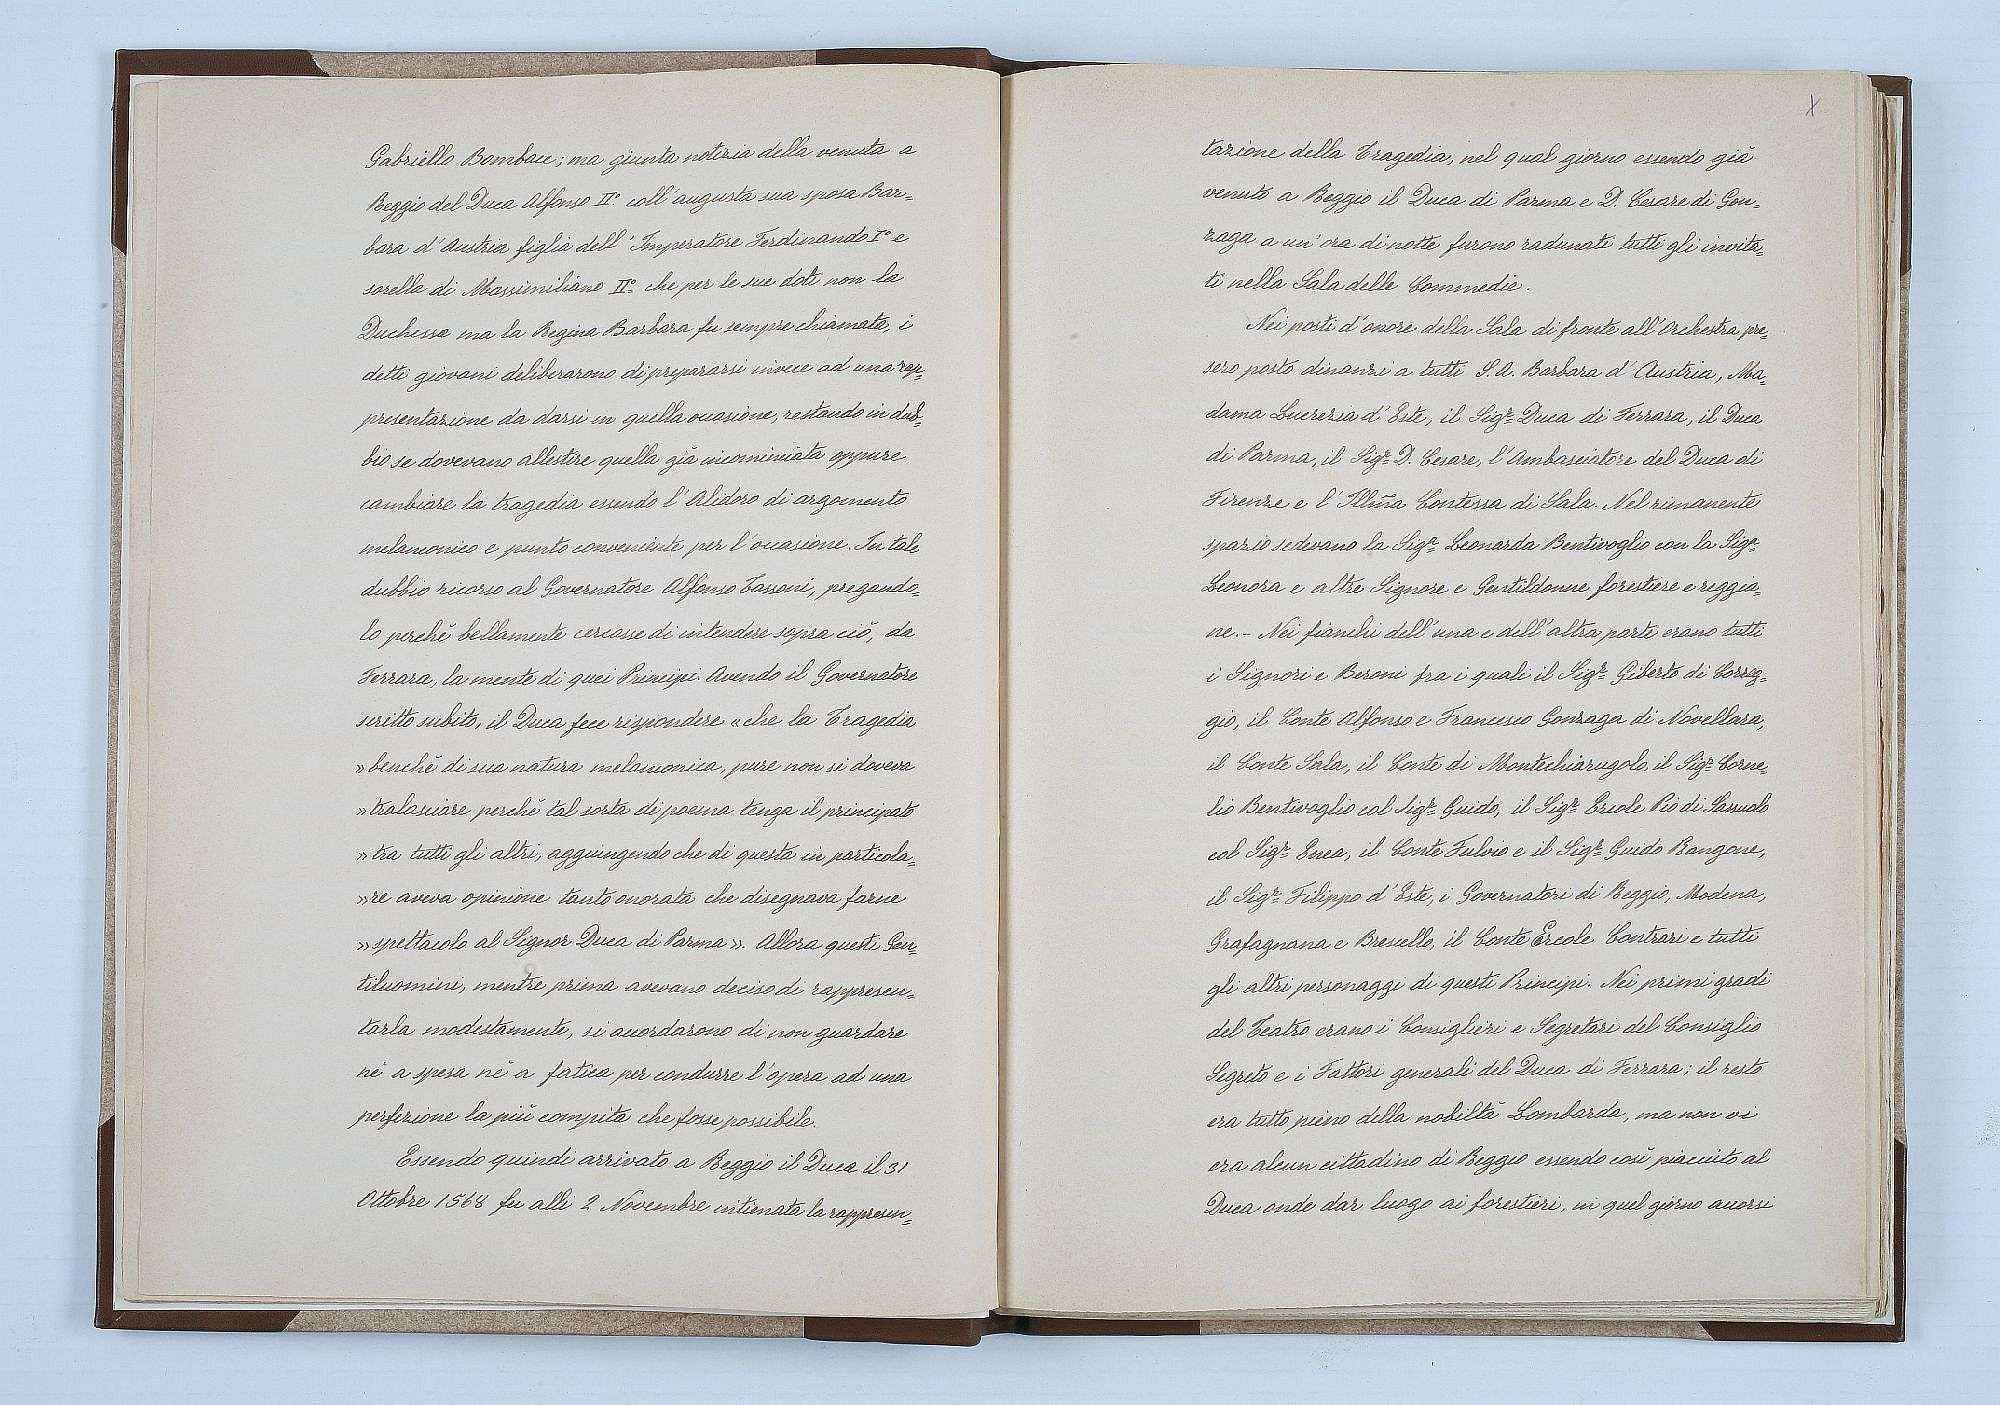 Gabriello Bombace; ma giunta notizia della venuta a
Reggio del Duca Alfonso II.° coll'augusta sua sposa Bar=
bara d'Austria figlia dell'Imperatore Ferdinando I° e
sorella di Massimiliano II.° che per le sue doti non la
Duchessa ma la Regina Barbara fu sempre chiamata, i
detti giovani deliberarono di prepararsi invece ad una rap=
presentazione da darsi in quella occasione, restando in dub=
bio se dovevano allestire quella già incominciata oppure
cambiare la tragedia essendo l'Alidoro di argomento
melanconico e punto conveniente per l'occasione. In tale
dubbio ricorso al Governatore Alfonso Tassoni, pregando=
lo perchè bellamente cercasse di intendere sopra ciò, da
Ferrara, la mente di quei Principi. Avendo il Governatore
scritto subito, il Duca fece rispondere «che la Tragedia
»benchè di sua natura melanconica, pure non si doveva
»tralasciare perchè tal sorta di poema tenga il principato
»tra tutti gli altri, aggiungendo che di questa in particola=
»re aveva opinione tanto onorata che disegnava farne
»spettacolo al Signor Duca di Parma». Allora questi Gen=
tiluomini, mentre prima avevano deciso di rappresen=
tarla modestamente, si accordarono di non guardare
nè a spesa nè a fatica per condurre l'opera ad una
perfezione la più compita che fosse possibile.
Essendo quindi arrivato a Reggio il Duca il 31
Ottobre 1568 fu alli 2 Novembre intimata la rappresen=
X
tazione della Tragedia, nel qual giorno essendo già
venuto a Reggio il Duca di Parma e D. Cesare di Gon=
zaga a un'ora di notte furono radunati tutti gli invita=
ti nella Sala delle Commedie.
Nei posti d'onore della Sala di fronte all'Orchestra pre=
sero posto dinanzi a tutti S. A. Barbara d'Austria, Ma=
dama Lucrezia d'Este, il Sigr. Duca di Ferrara, il Duca
di Parma, il Sigr. D. Cesare, l'Ambasciatore del Duca di
Firenze e l'Illm̃a Contessa di Sala. Nel rimanente
spazio sedevano la Sigra. Leonarda Bentivoglio con la Sigra.
Leonora e altre Signore e Gentildonne forestiere e reggia=
ne. - Nei fianchi dell'una e dell'altra parte erano tutti
i Signori e Baroni fra i quali il Sigr. Giberto di Correg=
gio, il Conte Alfonso e Francesco Gonzaga di Novellara,
il Conte Sala, il Conte di Montechiarugolo, il Sigr. Corne=
lio Bentivoglio col Sigr. Guido, il Sigr. Ercole Pio di Sassuolo
col Sigr. Enea, il Conte Fulvio e il Sigr. Guido Rangone,
il Sigr. Filippo d'Este, i Governatori di Reggio, Modena,
Grafagnana e Bresello, il Conte Ercole Contrari e tutti
gli altri personaggi di questi Principi. Nei primi gradi
del Teatro erano i Consiglieri e Segretari del Consiglio
Segreto e i Fattori generali del Duca di Ferrara; il resto
era tutto pieno della nobiltà Lombarda, ma non vi
era alcun cittadino di Reggio essendo così piaciuto al
Duca onde dar luogo ai forestieri, in quel giorno accorsi